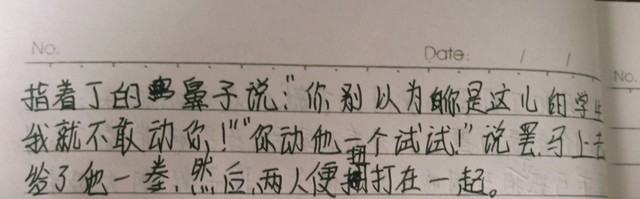 No.
Date: / /
No.
指着丁的鼻子说:"你别以为你是这儿的学生
我就不敢动你!""你动他一个试试!"说罢,马上去
给了他一拳,然后,两人便扭打在一起。